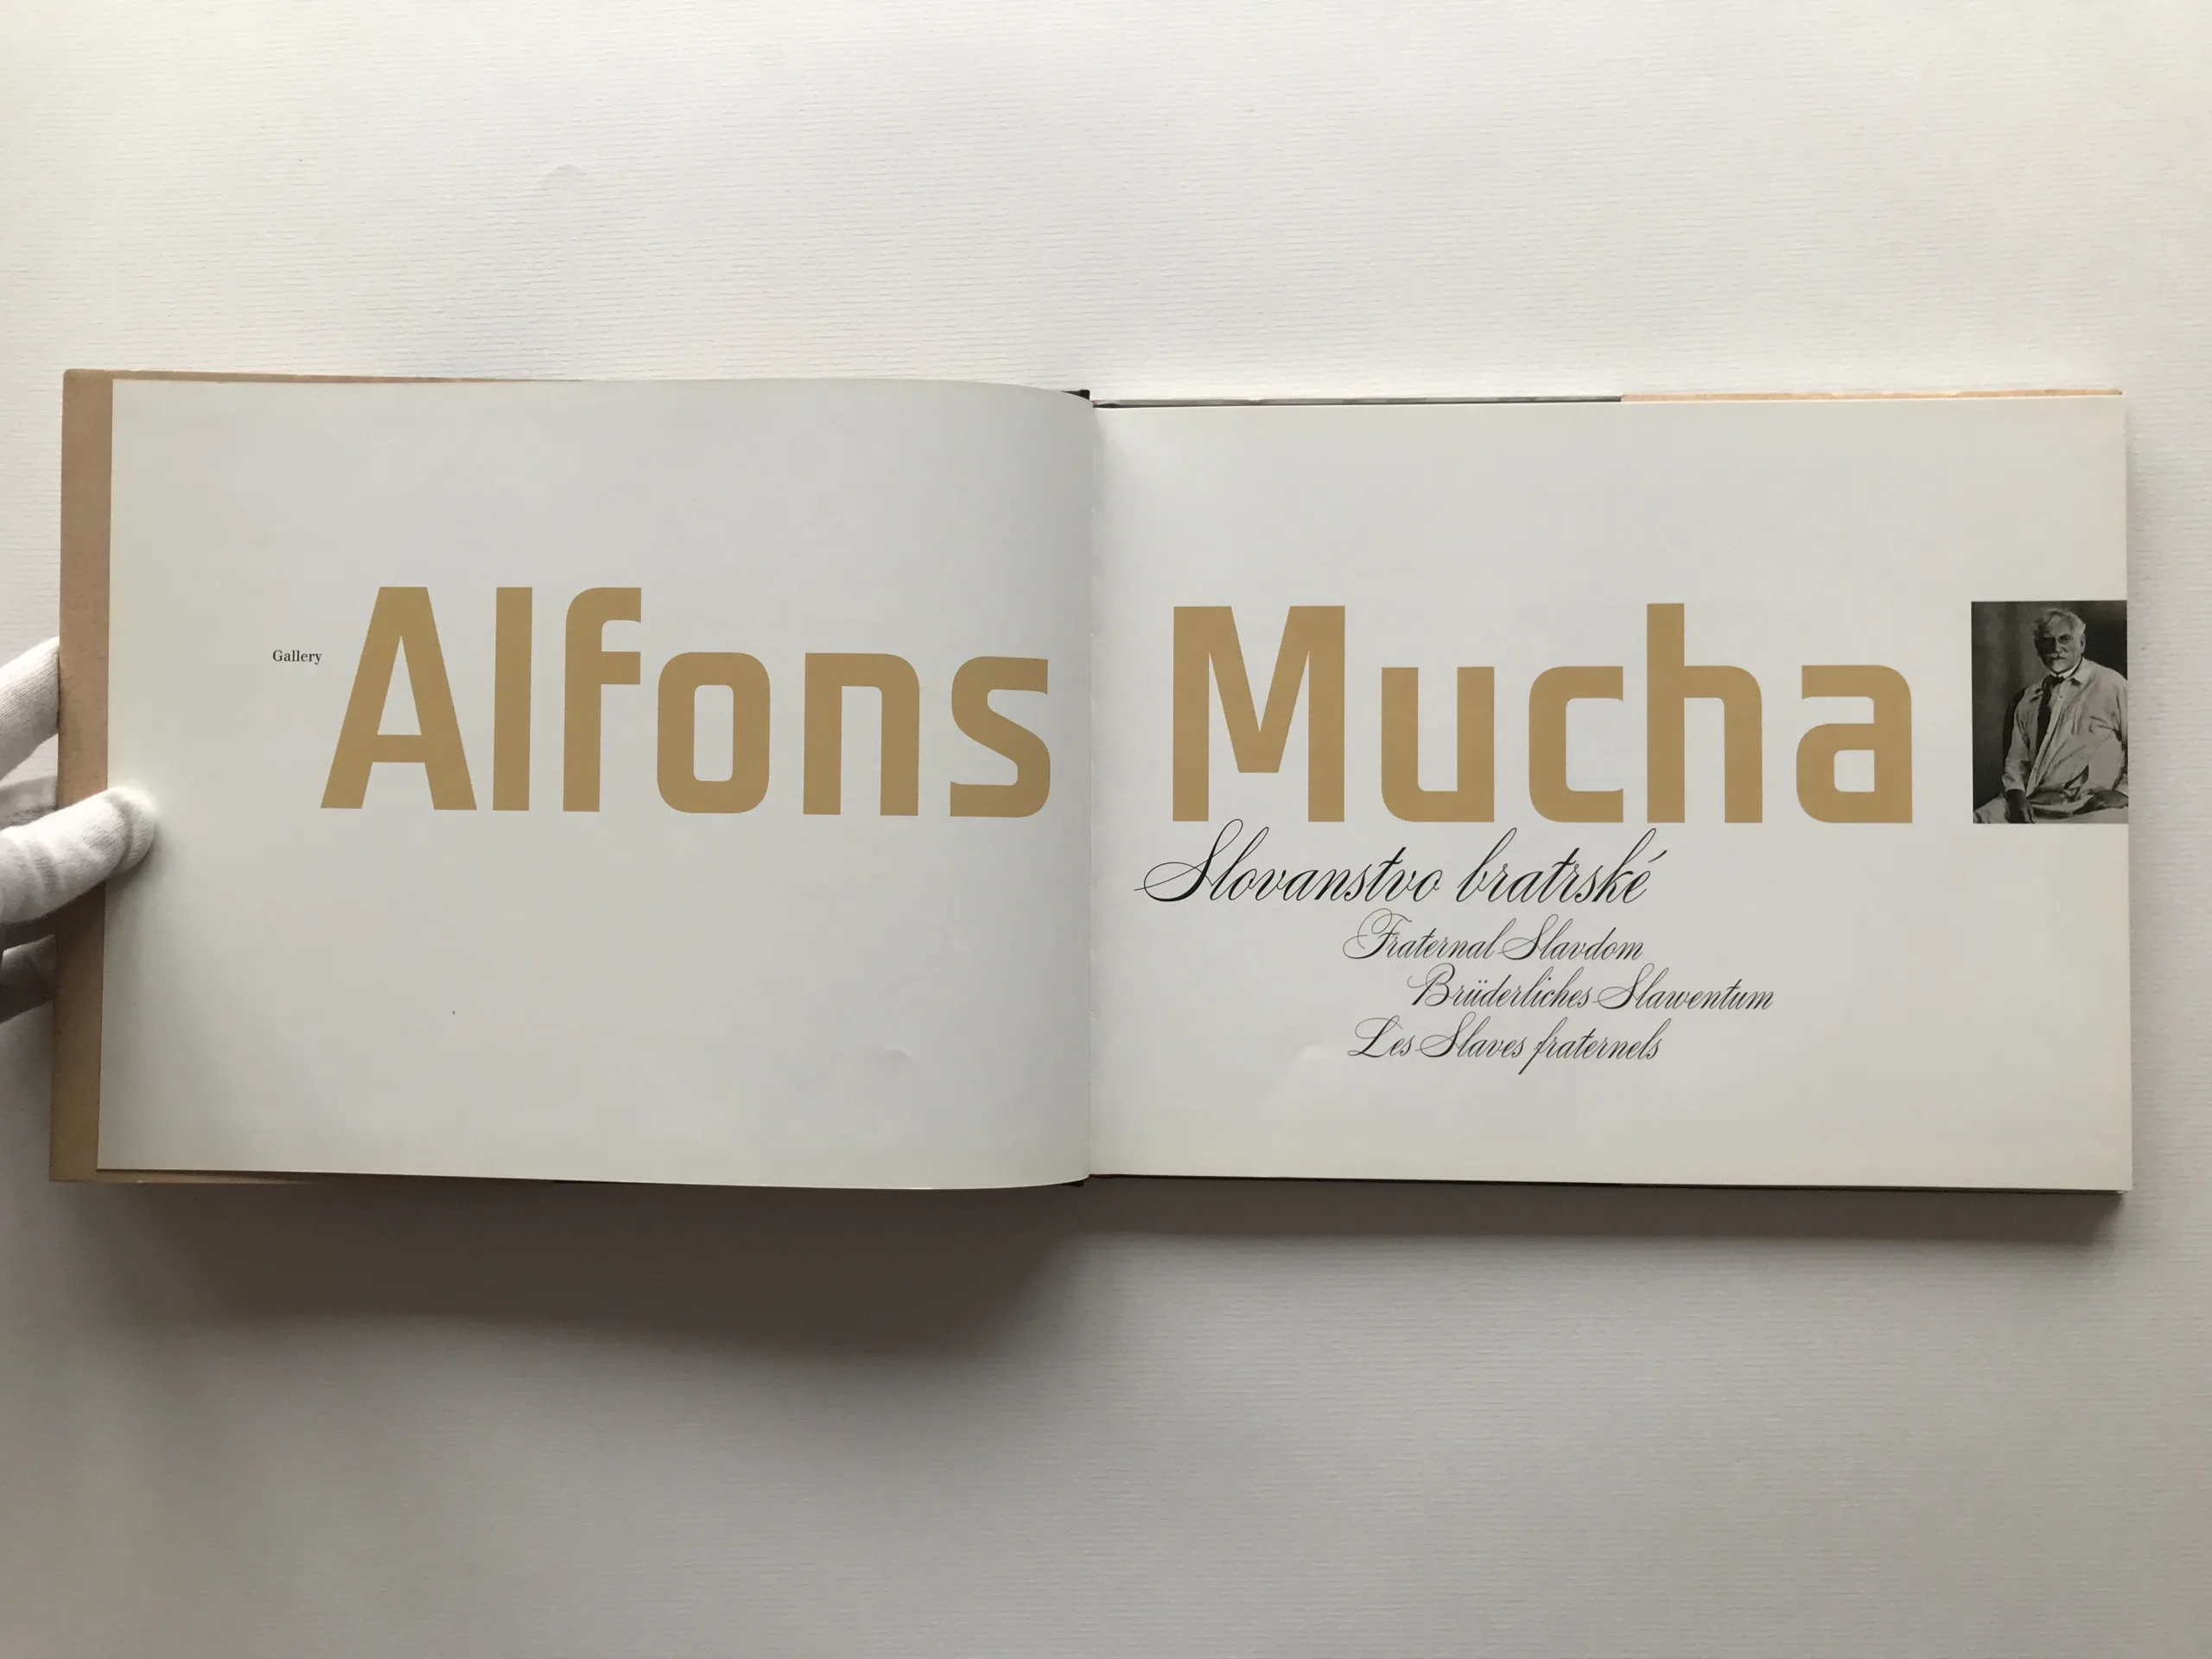 Gallery
Alfons Mucha
Slovanstvo bratrské
Fraternal Slavdom
Brüderliches Slawentum
Les Slaves fraternels